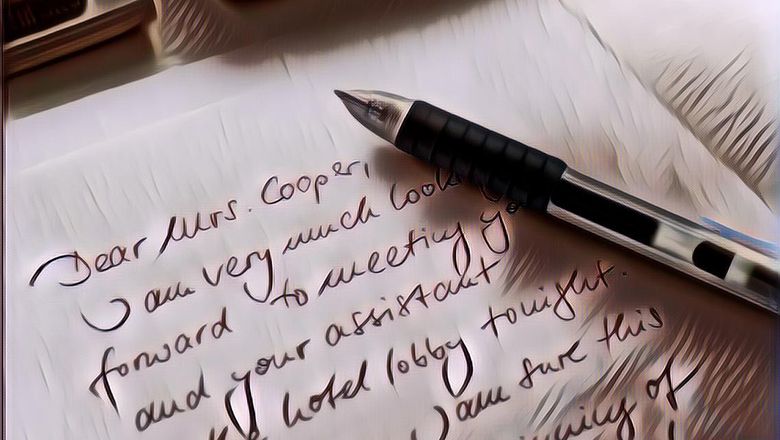 Dear Mrs. Cooper,
I am very much
forward to meeting
and your assistant
hotel lobby tonight.
I am sure this
of